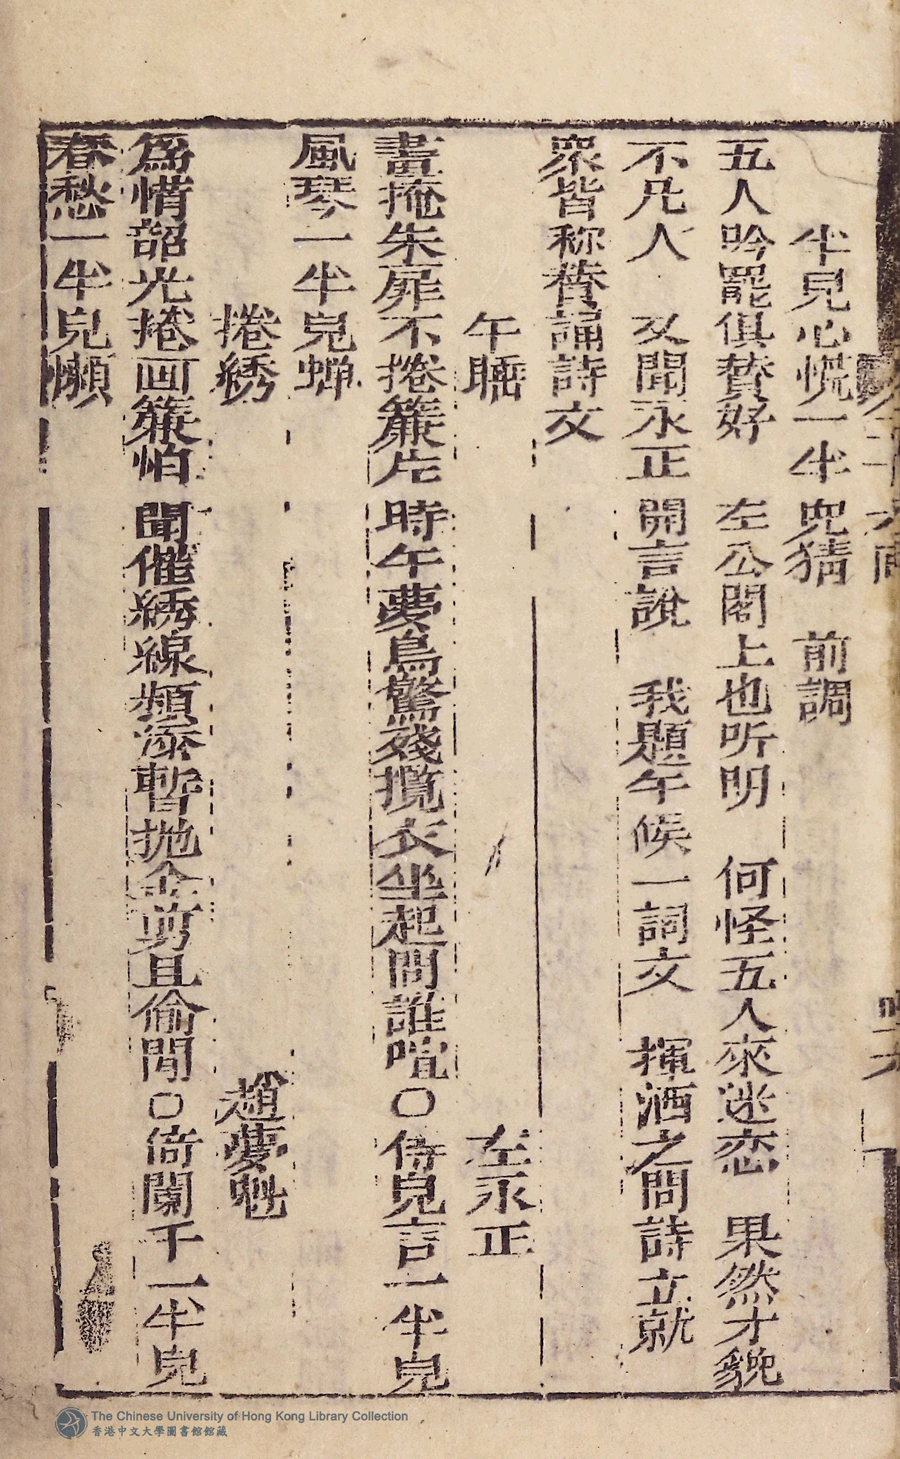 半兒心慌一半兜猜　前調
五人吟罷俱賛好　左公閣上也听明　何怪五人來迷恋　果然才貌
不凡人　又聞永正開言說　我題午候一詞文　揮洒之間詩立就
眾皆称賛誦詩文
午聽　左永正
晝掩朱扉不捲簾片時午夢鳥驚殘攬衣坐起問誰喧○侍兒言一半兒
風琴一半兒蝉
捲綉　趙夢魁
為惜韶光捲画簾怕聞催綉線頻添暫拋金剪且偷閒○倚闌干一半兒
春愁一半兒懶
The Chinese University of Hong Kong Library Collection
香港中文大學圖書館館藏